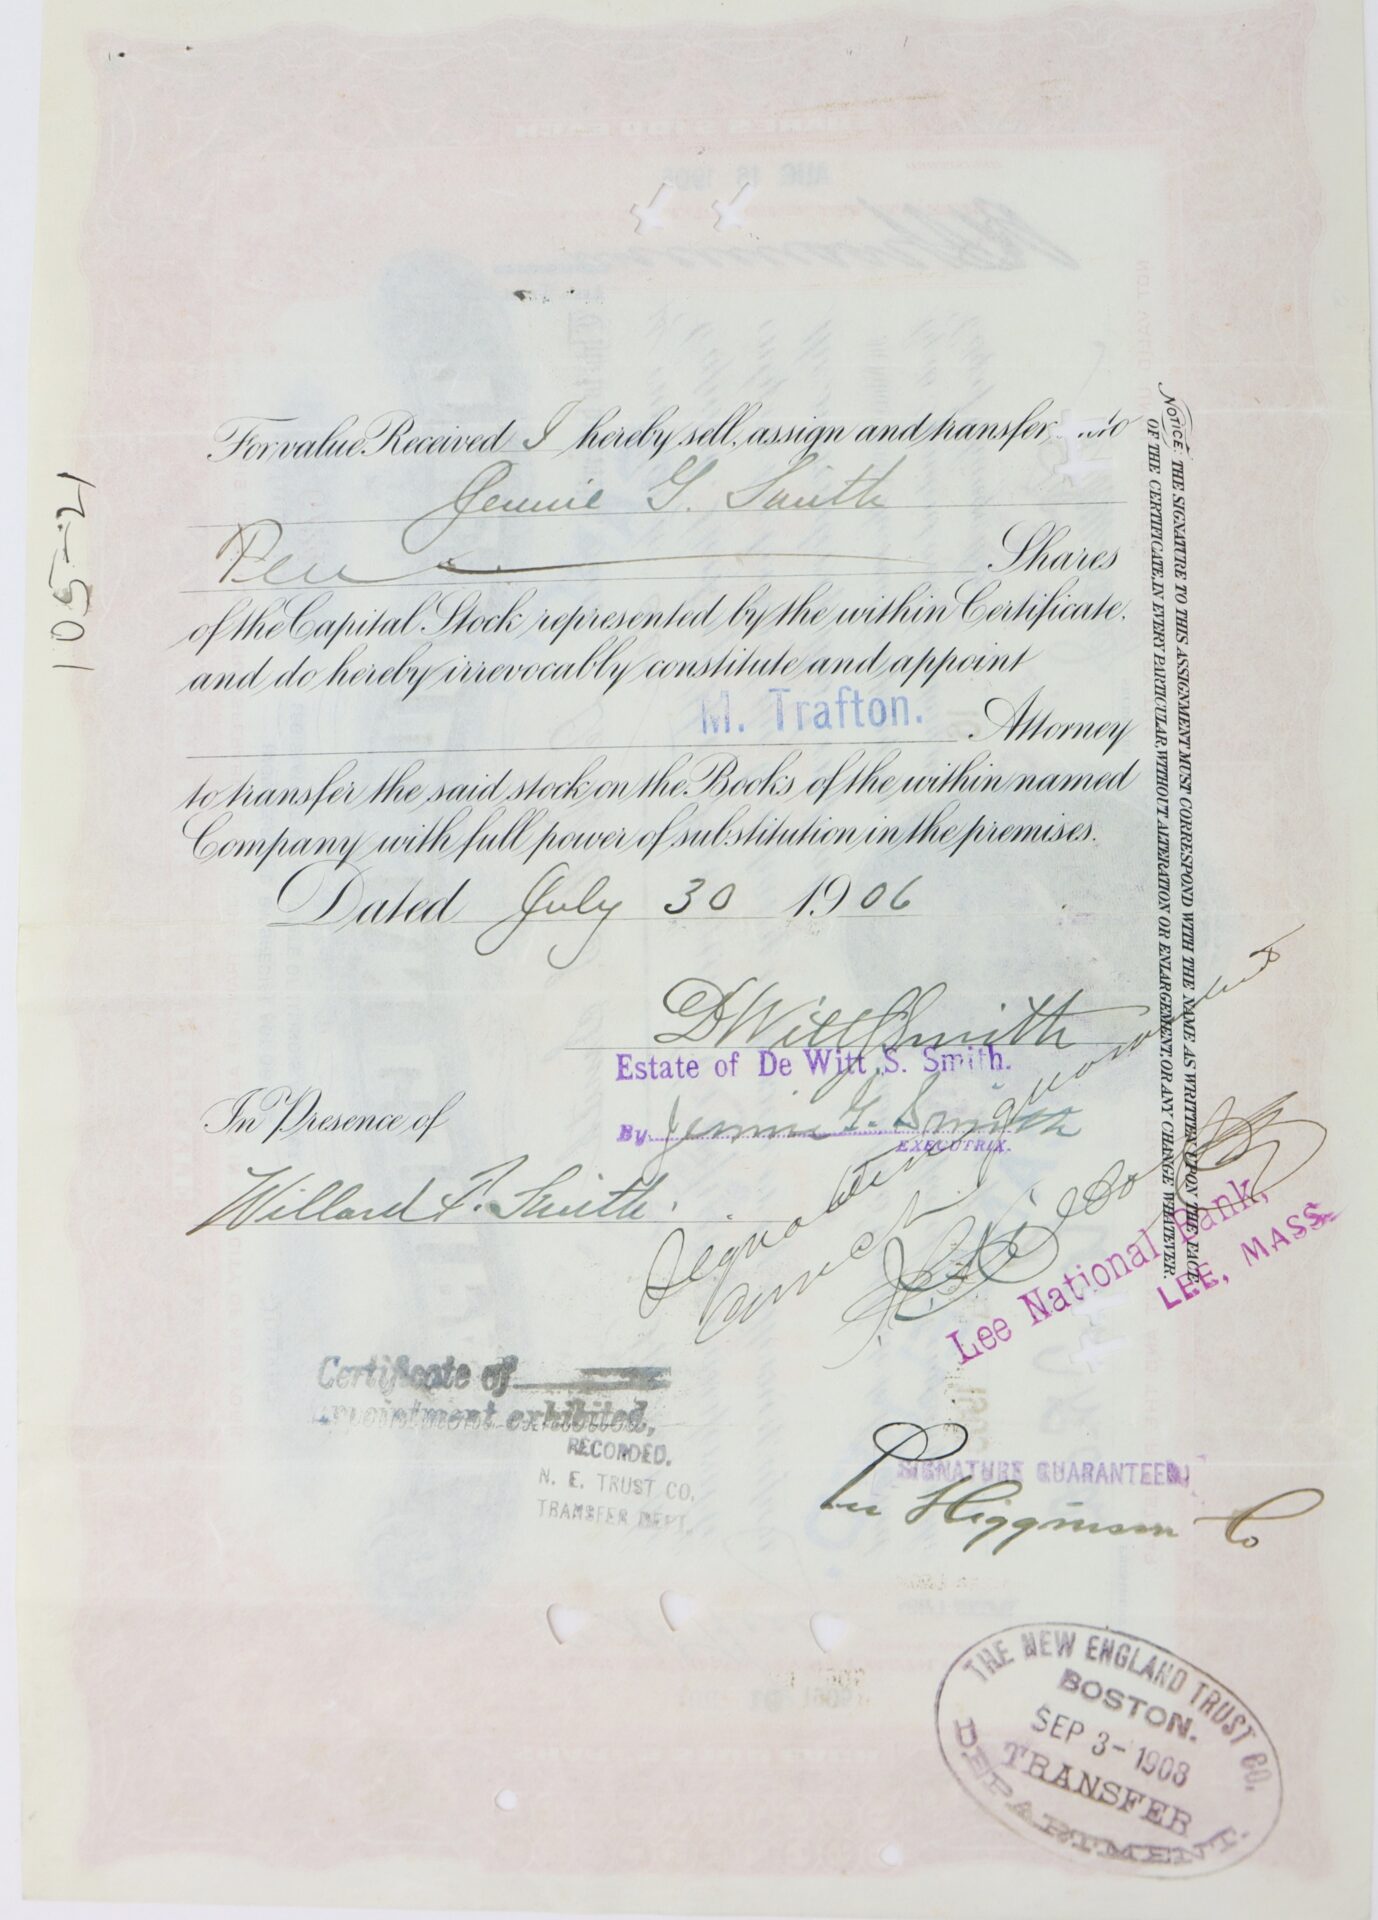 For value Received I hereby sell, assign and transfer unto
Jennie G. Smith
Ten Shares
of the Capital Stock represented by the within Certificate,
and do hereby irrevocably constitute and appoint
M. Trafton.
Attorney
to transfer the said stock on the Books of the within named
Company with full power of substitution in the premises.
Dated July 30 1906
DWitt S Smith
Estate of De Witt S. Smith.
By Jennie G. Smith
EXECUTRIX.
In Presence of
Willard F. Smith.
Signature guaranteed
correct
Lee National Bank,
LEE, MASS.
Certificate of
appointment exhibited,
RECORDED.
N. E. TRUST CO.
TRANSFER DEPT.
SIGNATURE GUARANTEED
Lee Higginson Co
THE NEW ENGLAND TRUST CO.
BOSTON.
SEP 3-1908
TRANSFER
DEPARTMENT
NOTICE. THE SIGNATURE TO THIS ASSIGNMENT MUST CORRESPOND WITH THE NAME AS WRITTEN UPON THE FACE
OF THE CERTIFICATE, IN EVERY PARTICULAR, WITHOUT ALTERATION OR ENLARGEMENT, OR ANY CHANGE WHATEVER.
105-21